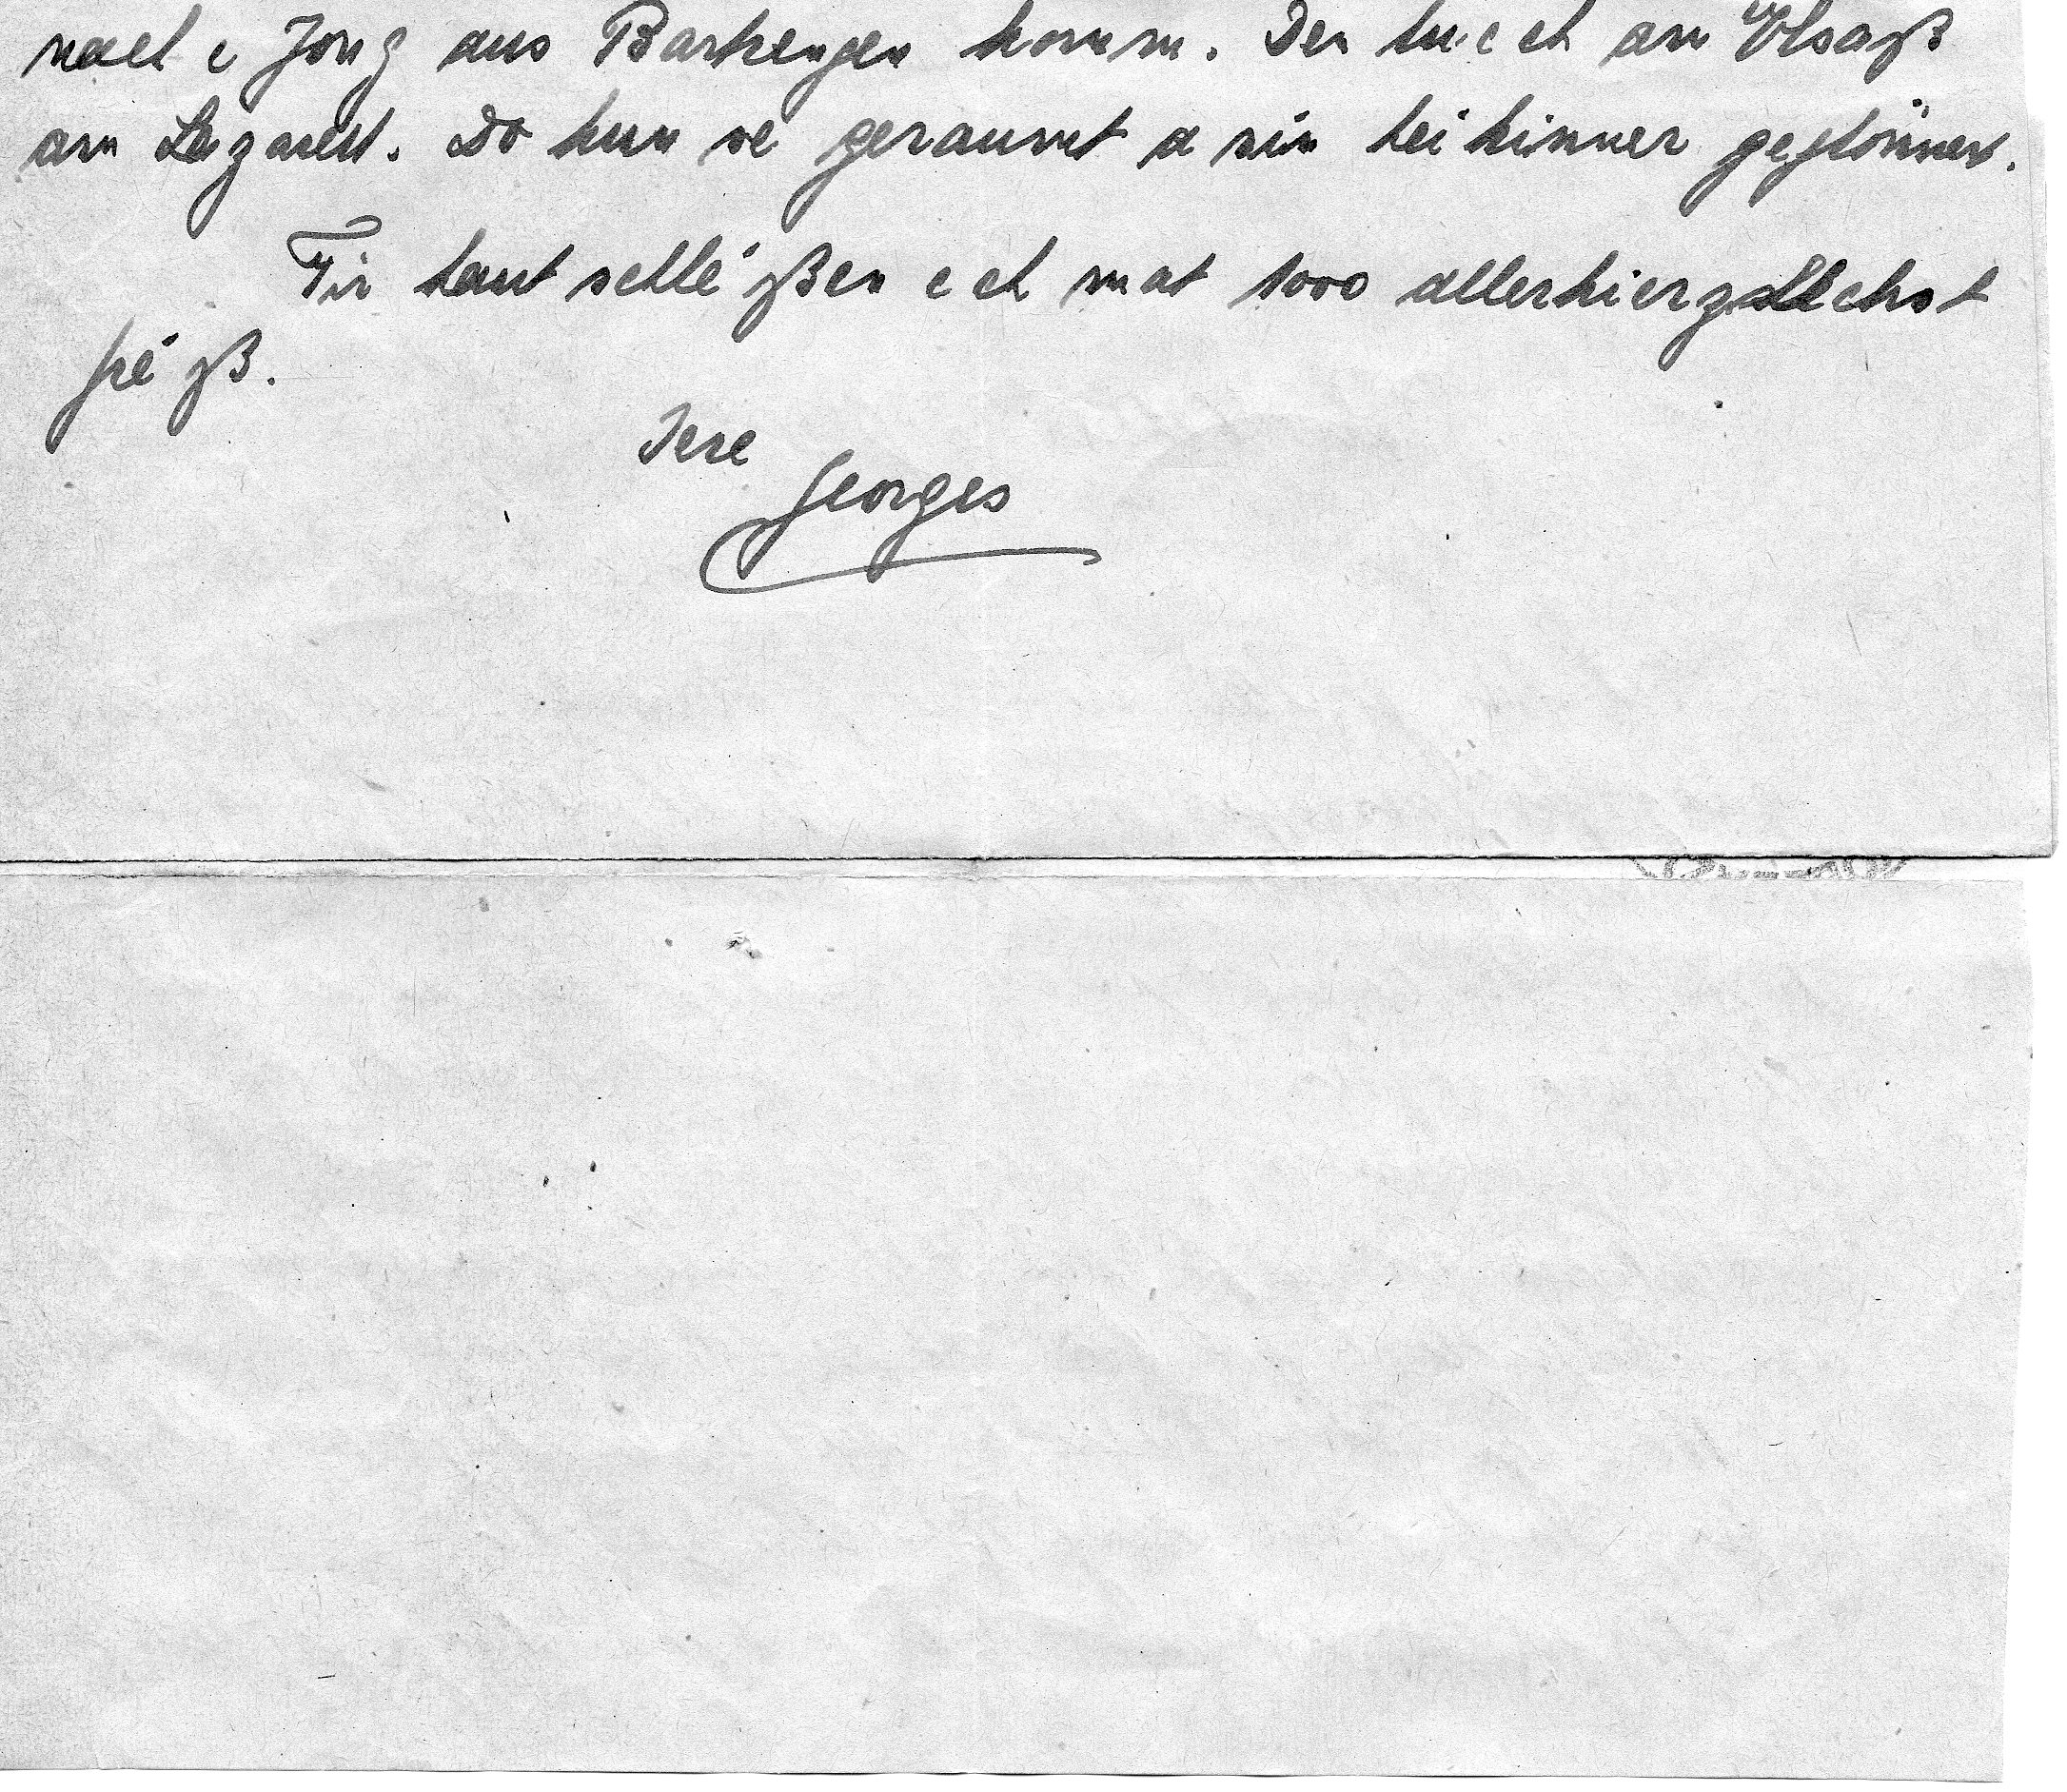 nach e Jong aus Bartrengen komm. Den luch am Elsaß
am Lazarett. Do hun se geraumt a sin hei hinner gestönnert.
Fir haut schlé'ßen ech mat 1000 allerhierzlechst
Gré'ß.
Iere
Georges